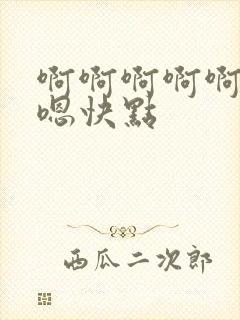 啊啊啊啊啊
嗯快點
西瓜二次郎